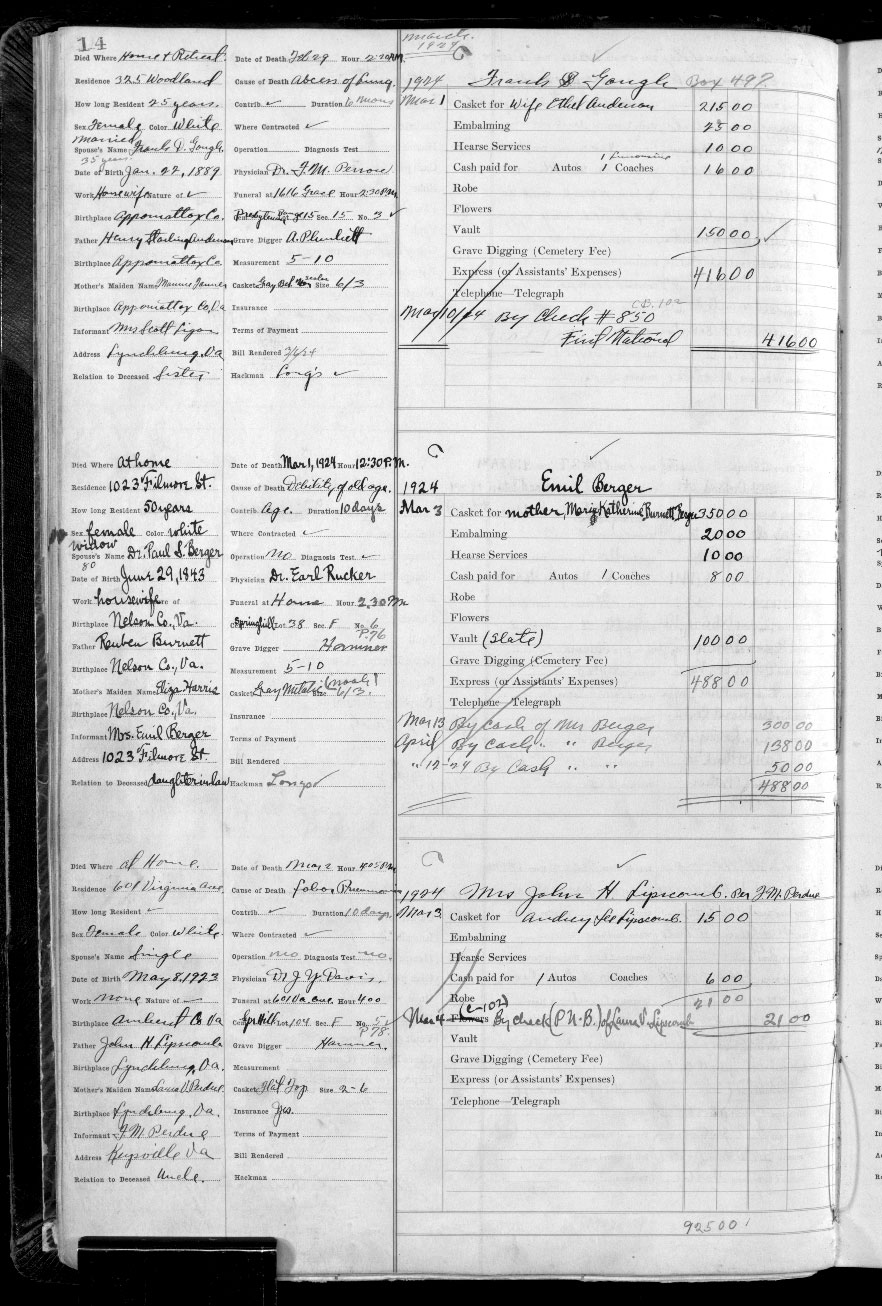 14
March
1924
Died Where Home & Retreat
Residence 325 Woodland
How long Resident 25 years
Sex Female Color White
Married
Spouse's Name Frank D. Gough
35 years
Date of Birth Jan. 22, 1889
Work Housewife Nature of ✓
Birthplace Appomattox Co.
Father Henry Starling Anderson
Birthplace Appomattox Co.
Mother's Maiden Name Mannie
Birthplace Appomattox Co, Va
Informant Mrs Scott Ligon
Address Lynchburg, Va
Relation to Deceased Sister
Date of Death Feb 29 Hour 2:20 AM
Cause of Death Abcess of Lung.
Contrib. ✓ Duration 6 mons
Where Contracted ✓
Operation Diagnosis Test
Physician Dr.
Funeral at 1616 Grace Hour 2:30 P.M.
Presbyterian 15 Sec. 15 No. 3 ✓
Grave Digger A. Plunkett
Measurement 5-10
Casket Gray Size 6/3
Insurance
Terms of Payment
Bill Rendered 3/6/24
Hackman Long's ✓
1924 Frank D Gough Box 497
Mar 1 Casket for Wife Ethel Anderson 215 00
Embalming 25 00
Hearse Services 10 00
1 Limousine
Cash paid for Autos 1 Coaches 16 00
Robe
Flowers
Vault 150 00 ✓
Grave Digging (Cemetery Fee)
Express (or Assistants' Expenses) 416 00
Telephone—Telegraph
C.B. 102
Mar 10/24 By Check # 850
First National 416 00
Died Where at home
Residence 1023 Filmore St.
How long Resident 50 years
Sex female Color white
widow
Spouse's Name Dr. Paul S. Berger
80
Date of Birth June 29, 1843
Work housewife Nature of
Birthplace Nelson Co., Va.
Father Reuben Burnett
Birthplace Nelson Co., Va.
Mother's Maiden Name Eliza Harris
Birthplace Nelson Co., Va.
Informant Mrs. Emil Berger
Address 1023 Filmore St.
Relation to Deceased daughter in law
Date of Death Mar 1, 1924 Hour 12:30 P.M.
Cause of Death Debility of old age.
Contrib. Age. Duration 10 days
Where Contracted ✓
Operation no Diagnosis Test ✓
Physician Dr. Earl Rucker
Funeral at Home Hour 2.30 PM
Springhill Lot 38 Sec. F No. 6
P76
Grave Digger Hamner
Measurement 5-10
Casket Gray Metalic Size 6/3.
Insurance
Terms of Payment
Bill Rendered
Hackman Longs ✓
1924 Emil Berger
Mar 3 Casket for mother, Marie Katherine Burnett Berger 350 00
Embalming 20 00
Hearse Services 10 00
Cash paid for Autos 1 Coaches 8 00
Robe
Flowers
Vault (Slate) 100 00
Grave Digging (Cemetery Fee)
Express (or Assistants' Expenses) 488 00
Telephone—Telegraph
Mar 13 By Cash of Mr Berger 300 00
April By Cash " " Berger 138 00
" 12-24 By Cash " " 50 00
488 00
Died Where at Home.
Residence 601 Virginia Ave
How long Resident ✓
Sex Female Color White.
Spouse's Name Single
Date of Birth May 8, 1923
Work none Nature of —
Birthplace Amherst Co Va
Father John H Lipscomb
Birthplace Lynchburg, Va.
Mother's Maiden Name Laura V Perdue
Birthplace Lynchburg, Va.
Informant J M Perdue
Address Keysville Va
Relation to Deceased Uncle.
Date of Death Mar 2 Hour 4:05 PM
Cause of Death Lobar Pneumonia
Contrib. ✓ Duration 10 days
Where Contracted ✓
Operation no Diagnosis Test no.
Physician Dr J. Y. Davis.
Funeral at 601 Va. ave. Hour 4 00
Spr Hill Lot 104 Sec. F No. 5 ✓
P78.
Grave Digger Hamner.
Measurement
Casket Flat Top Size 2-6
Insurance Yes.
Terms of Payment
Bill Rendered
Hackman
1924 Mrs John H Lipscomb. Per J. M. Perdue
Mar 3 Casket for Audrey Lee Lipscomb. 15 00
Embalming
Hearse Services
Cash paid for 1 Autos Coaches 6 00
Robe 21 00
(C-102)
Mar 4 Flowers By check (P.N.B.) of Laura V. Lipscomb 21 00
Vault
Grave Digging (Cemetery Fee)
Express (or Assistants' Expenses)
Telephone—Telegraph
925 00